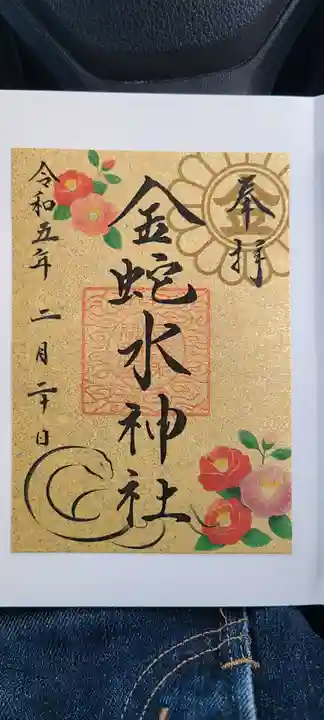 奉拝
金蛇水神社
令和五年 二月二十日